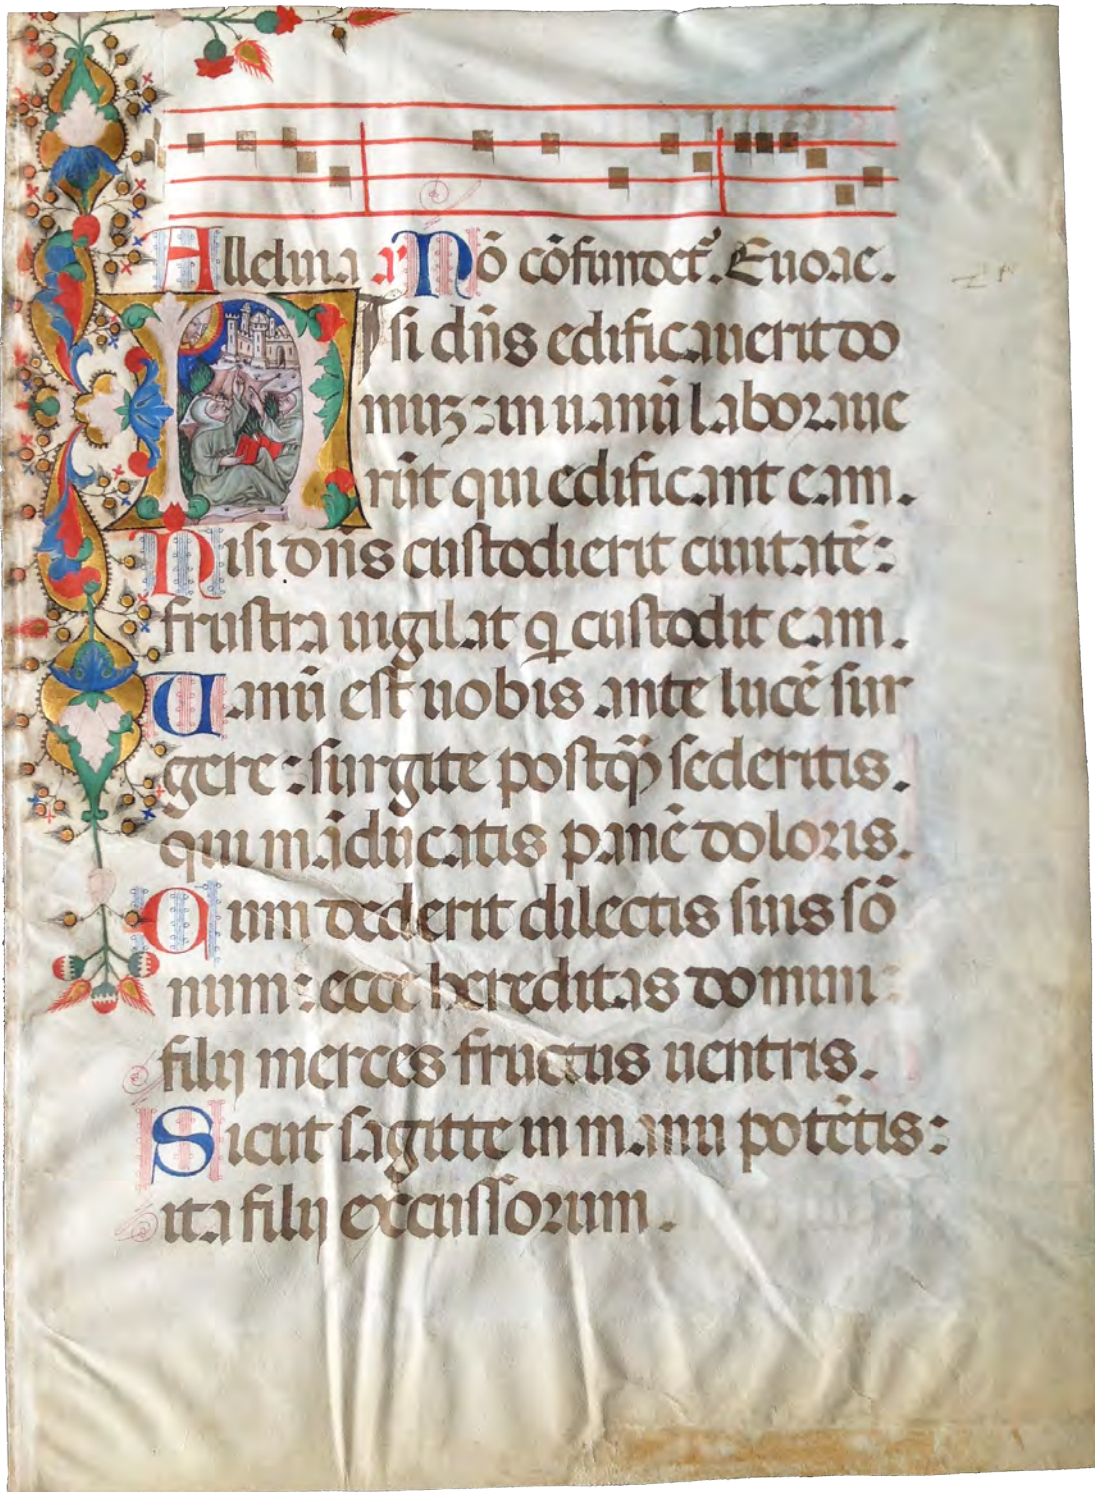 Alleluia. Nō cōfundet᷑. Euoae.
Nisi dn̄s edificauerit do
muꝫ: in uanū laboraue
rūt qui edificant eam.
Nisi dn̄s custodierit ciuitatē:
frustra uigilat q custodit eam.
Uanū est uobis ante lucē sur
gere: surgite postq̄ sederitis.
qui māducatis panē doloris.
Cum dederit dilectis suis sō
num: ecce hereditas domini:
filij merces fructus uentris.
Sicut sagitte in manu potētis:
ita filij excussorum.